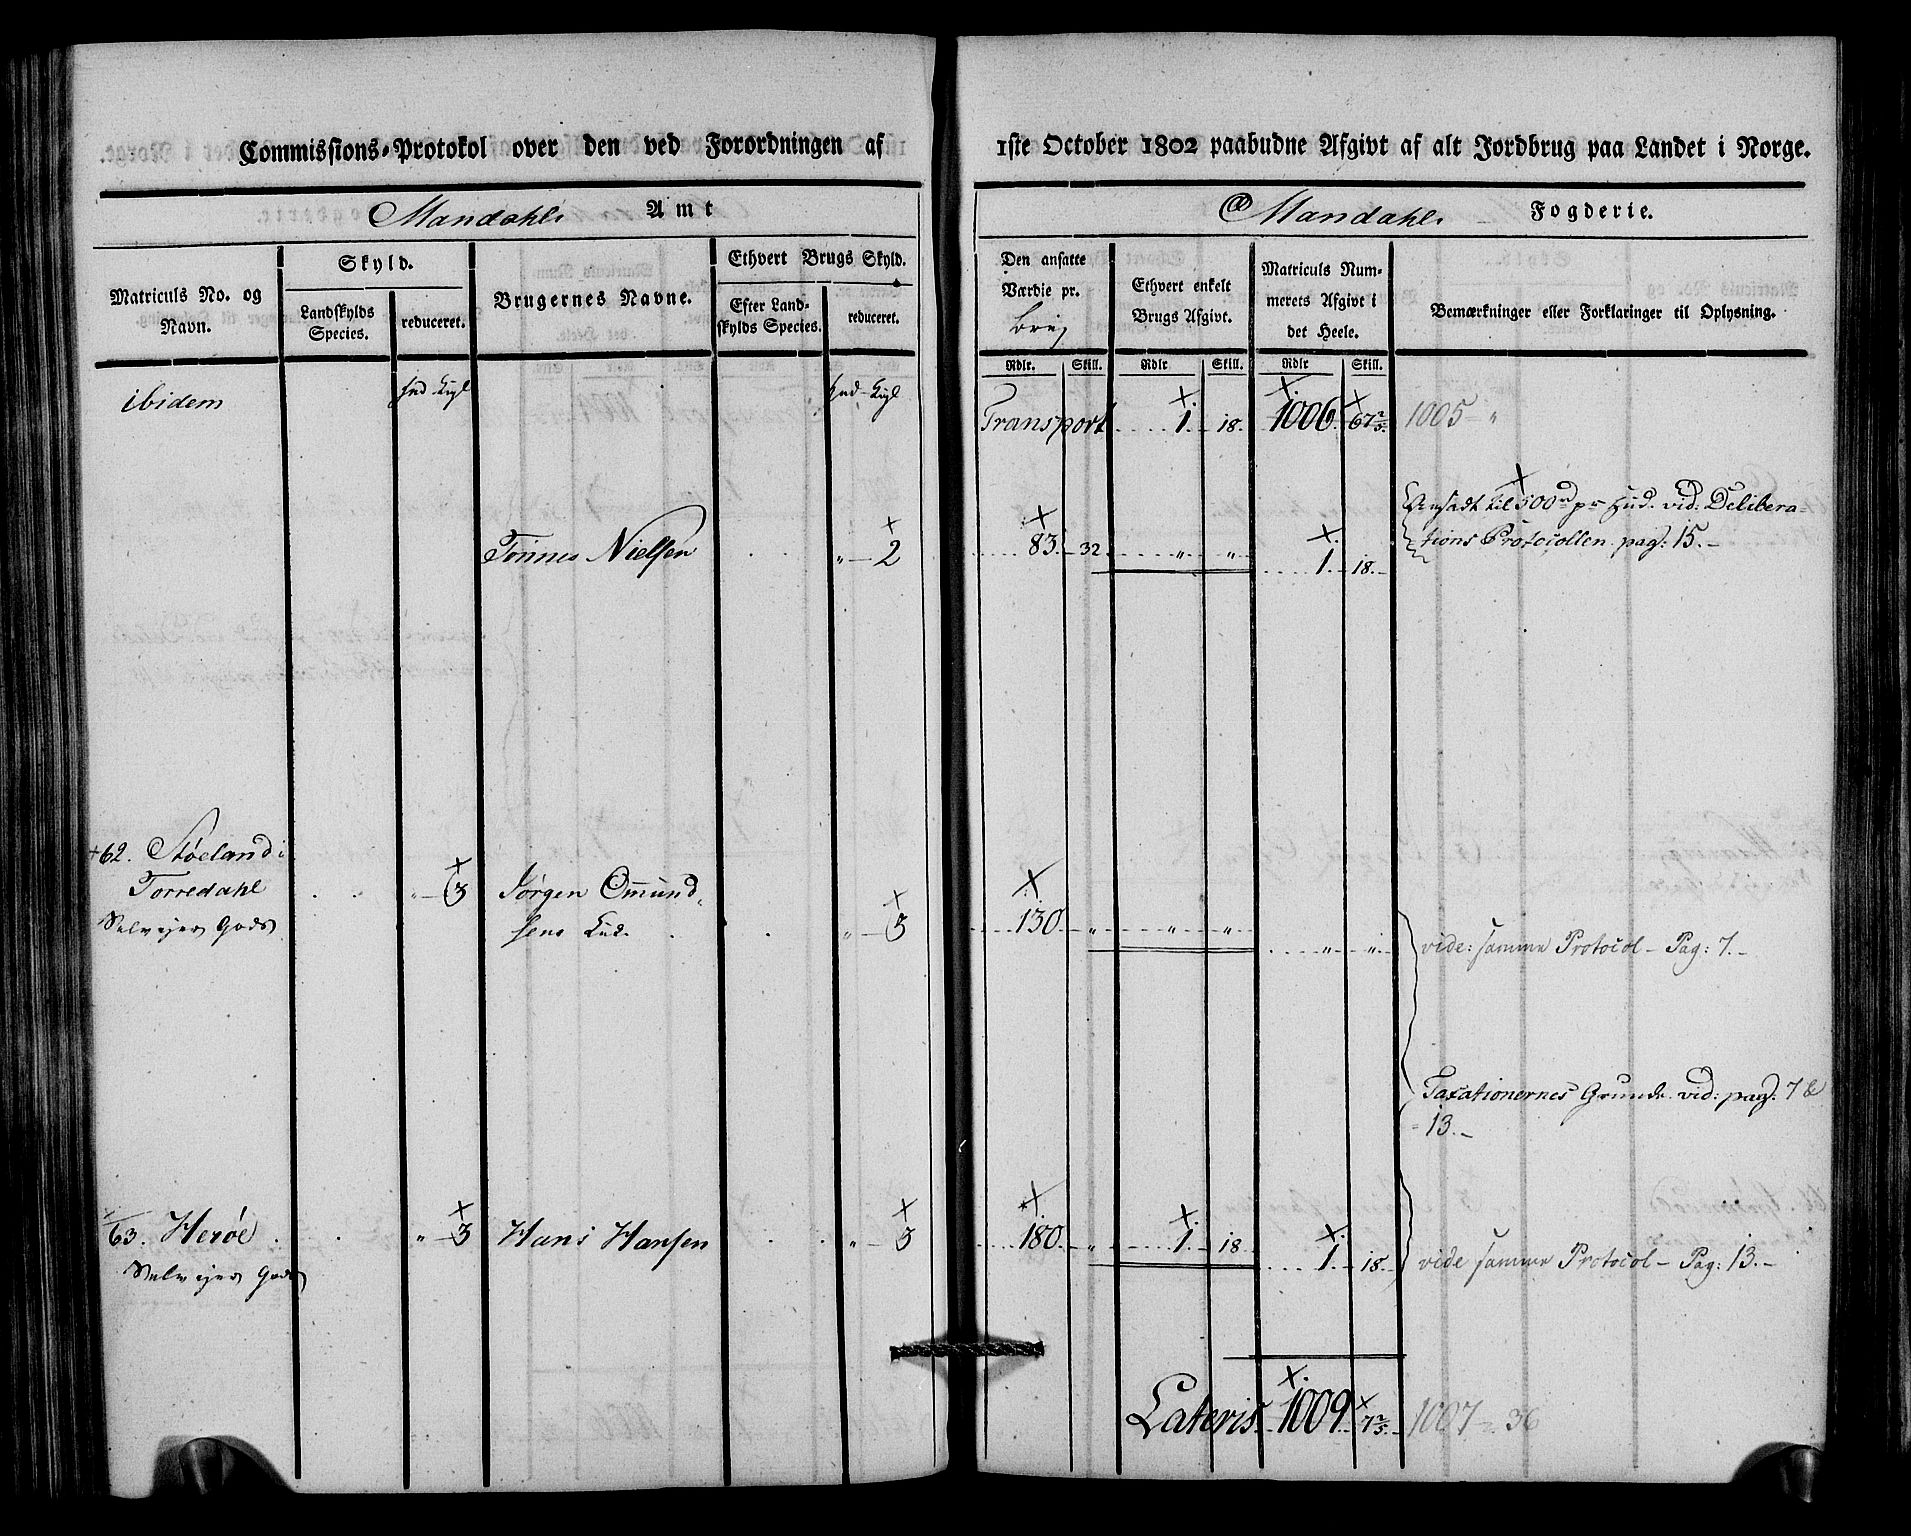 Commissions-Protokol over den ved Forordningen af 1ste October 1802 paabudne Afgivt af alt Jordbrug paa Landet i Norge.
Mandahls Amt
Mandahls Fogderie.
Matriculs No. og Navn.
Skyld.
Landskylds Species.
reduceret.
Brugernes Navne.
Ethvert Brugs Skyld.
Efter Landskylds Species.
reduceret.
Den ansatte Værdie pr. brug
Ethvert enkelt Brugs Afgivt.
Matriculs Nummerets Afgivt i det Heele.
Bemærkninger eller Forklaringer til Oplysning.
Rdlr. Skill. Rdlr Skill. Rdlr Skill.
ibidem
Transport 1. 18. 1006. 67 2/5. 1005 - "
Ansadt til 500 rd pr Hud. vid: Delibera-
Tønnes Nielsen " - 2 83. - 32 " " tions Protocollen pag: 15. -
1. 18. -
+62. Støeland i
Torredahl " - 3 Jørgen Omund-
Selvejer Gods sens " - 3 130 " " "
" " vide: samme Protocol - Pag: 7. -
Taxationernes Grunde vid: pag: 7 &
13. -
63. Herøe " - 3 Hans Hansen " - 3 180. - " 1. 18
Selvejer Gods 1. 18. - vide samme Protocol - Pag: 13. -
Lateris 1009. 7 2/5. - 1007 - 36